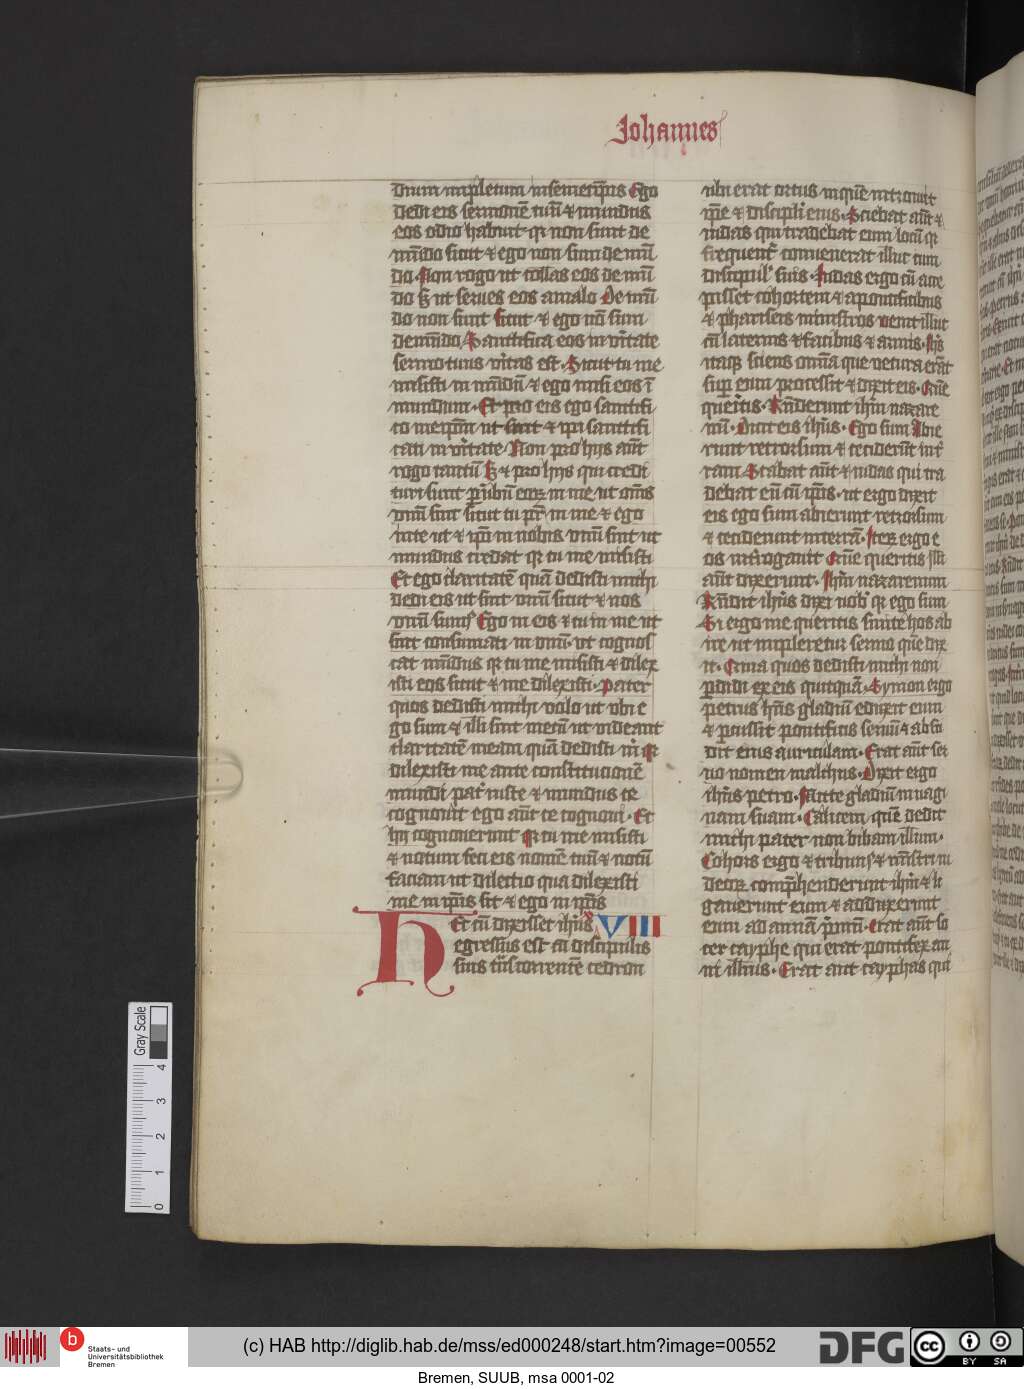 Johannes
dium impletum in semetip̄is Ego
dedi eis sermonē tuū ⁊ mundus
eos odio habuit qr non sunt de
mūdo sicut ⁊ ego non sum de mū
do. Non rogo ut tollas eos de mū
do sꝫ ut serues eos a malo De mū
do non sunt sicut ⁊ ego nō sum
de mūdo. Sanctifica eos in vītate
sermo tuus vītas est. Sicut tu me
misisti in mūdū ⁊ ego misi eos ī
mundum. Et pro eis ego sanctifi
co meip̄m ut sint ⁊ ip̄i sanctifi
cati in vītate Non pro hijs aūt
rogo tantū sꝫ ⁊ pro hijs qui credi
turi sunt p̄ ūbū eoꝝ in me ut om̄s
vnū sint sicut tu pr̄ in me ⁊ ego
in te ut ⁊ ip̄i in nobis vnū sint ut
mundus credat qr tu me misisti
Et ego claritatē quā dedisti michi
dedi eis ut sint vnū sicut ⁊ nos
vnū sumꝰ Ego in eis ⁊ tu in me ut
sint consumati in vnū. ut cognos
cat mūdus qr tu me misisti ⁊ dilex
isti eos sicut ⁊ me dilexisti. Pater
quos dedisti michi volo ut vbi e
go sum ⁊ illi sint mecū ut videant
claritatē meam quā dedisti m̄ qr
dilexisti me ante constitucionē
mundi pat̄ iuste ⁊ mundus te
cognouit ego aūt te cognoui. Et
hii cognouerunt qr tu me misisti
⁊ notum feci eis nomē tuū ⁊ notū
faciam ut dilectio qua dilexisti
me in ip̄is sit ⁊ ego in ip̄is
Hec cū dixisset ih̄us XVIII
egressus est cū discipulis
suis tn̄s torrentē cedron
ubi erat ortus in quē introiuit
ip̄e ⁊ discipli eius. Sciebat aūt ⁊
iudas qui tradebat eum locū qr
frequent̄ conuenerat illuc cum
discipul' suis. Judas ergo cū acce
pisset cohortem ⁊ a pontificibus
⁊ phariseis ministros venit illuc
cū laternis ⁊ facibus ⁊ armis. Ih̄s
itaqꝫ sciens omīa que vētura erāt
sup̄ eum processit ⁊ dixit eis. Quē
queritis. Rn̄derunt ih̄m nazare
nū. Dicit eis ih̄us. Ego sum Abie
runt retrorsum ⁊ ceciderūt in t̄
ram Stabat aūt ⁊ iudas qui tra
debat eū cū ip̄is. ut ergo dixit
eis ego sum abierunt retrorsum
⁊ ceciderunt in terrā. Iteꝝ ergo e
os int̄rogauit Quē queritis Illi
aūt dixerunt. Ih̄m nazarenum
Rn̄dit ih̄us dixi uob' qr ego sum
Si ergo me queritis sinite hos ab
ire ut impleretur sermo quē dix
it. Quia quos dedisti michi non
p̄didi ex eis quitquā. Symon ergo
petrus hn̄s gladiū eduxit eum
⁊ p̄cussit pontificis seruū ⁊ absci
dit eius auriculam. Erat aūt ser
uo nomen malchus. Dixit ergo
ih̄us petro. Mitte gladiū in vagi
nam suam. Calicem quē dedit
michi pater non bibam illum.
Cohors ergo ⁊ tribunꝰ ⁊ mīstri iu
deoꝝ comp̄henderunt ih̄m ⁊ li
gauerunt eum ⁊ adduxerunt
eum ad annā p̄mū. Erat aūt so
cer cayphe qui erat pontifex an
ni illius. Erat aut cayphas qui
Gray Scale
4
3
2
1
0
b
Staats- und
Universitätsbibliothek
Bremen
(c) HAB http://diglib.hab.de/mss/ed000248/start.htm?image=00552
DFG
cc
BY SA
Bremen, SUUB, msa 0001-02